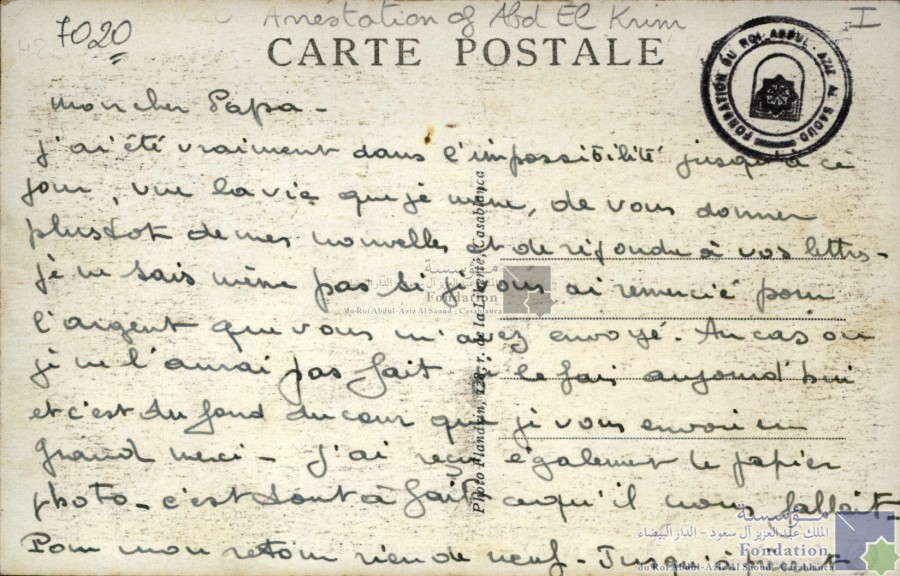 Arrestation of Abd El Krim
I
7020
CARTE POSTALE
FONDATION DU ROI ABDUL-AZIZ AL SAOUD
mon cher Papa -
j'ai été vraiment dans l'impossibilité jusqu'à ce
jour, vue la vie que je mène, de vous donner
plustot de mes nouvelles et de réponde à vos lettres -
je ne sais même pas si je vous ai remercié pour
l'argent que vous m'avez envoyé. Au cas où
je ne l'aurai pas fait je le fais aujourd'hui
et c'est du fond du cœur que je vous envoie un
grand merci - J'ai reçu également le papier
photo - c'est tout à fait ce qu'il nous fallait -
Pour mon retour rien de neuf - Jusqu'à présent
Photo Flandrin, 128, r. de la Liberté, Casablanca
مؤسسة
الملك عبد العزيز آل سعود - الدار البيضاء
Fondation
du Roi Abdul-Aziz Al Saoud - Casablanca
مؤسسة
الملك عبد العزيز آل سعود - الدار البيضاء
Fondation
du Roi Abdul-Aziz Al Saoud - Casablanca